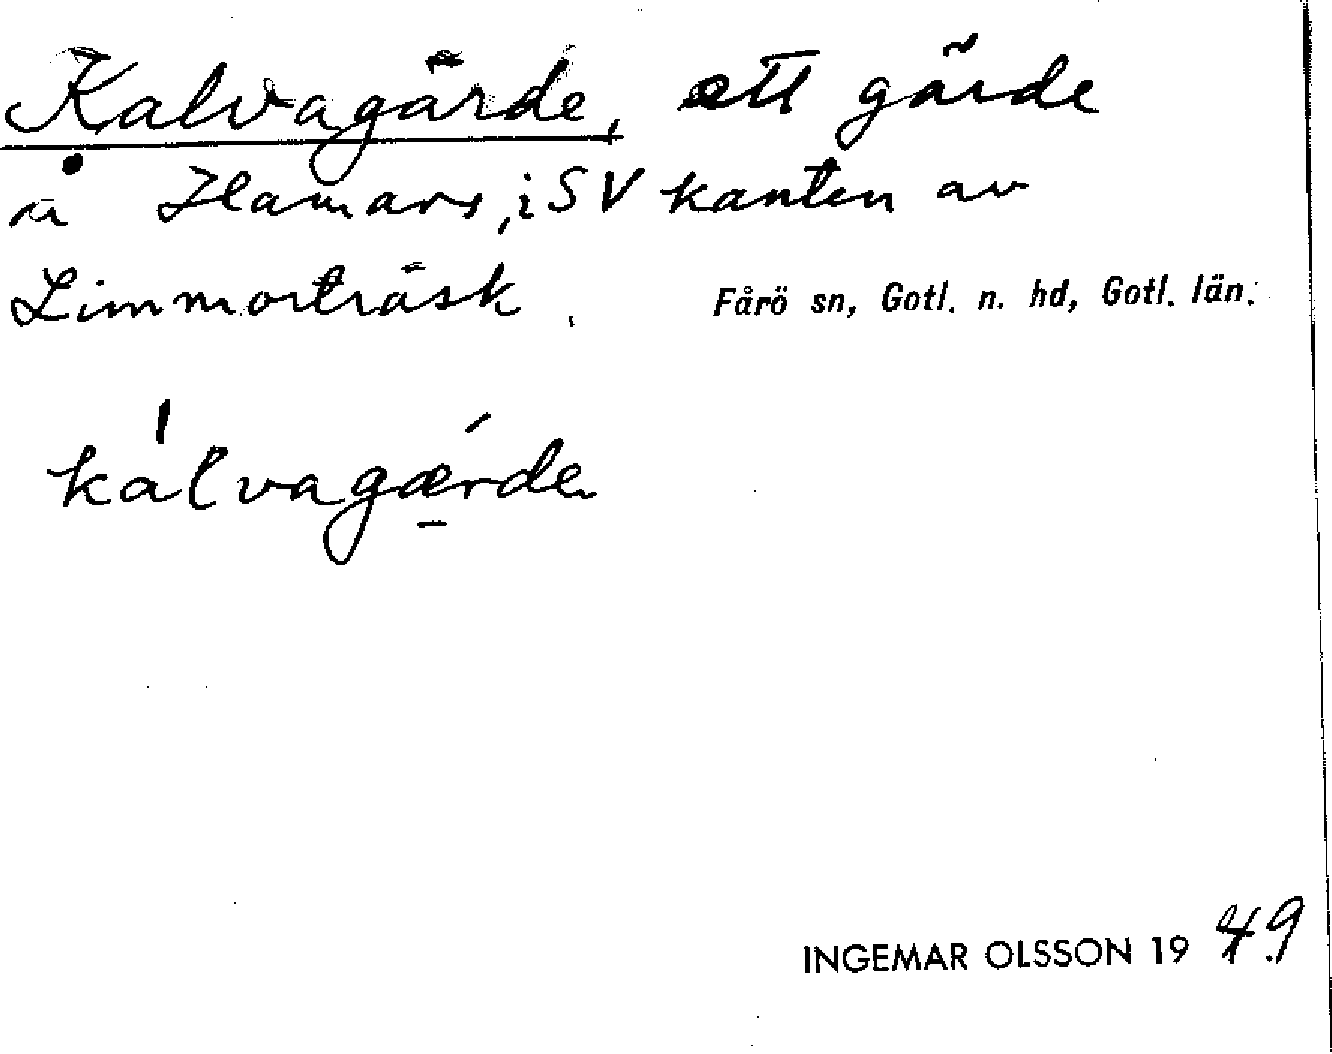 Kalvagärde, ett gärde
å Hammars, i SV kanten av
Limmorträsk.
Fårö sn, Gotl. n. hd, Gotl. län.
kálvagǽrde
INGEMAR OLSSON 19 49